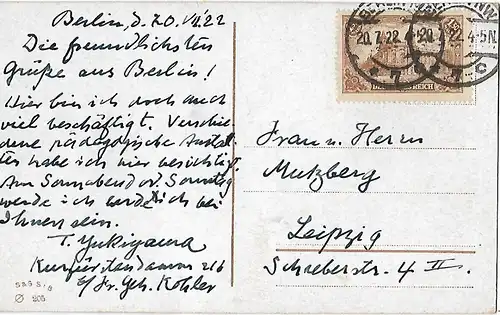 Berlin, d. 20. VII. 22
Die freundlichsten
Grüße aus Berlin!
Hier bin ich doch auch
viel beschäftigt. Verschie-
dene pädagogische Anstal-
ten habe ich hier besichtigt.
Am Sonnabend od. Sonntag
werde ich bei
Ihnen sein.
T. Yukiyama
Kurfürstendamm 216
b/Fr. Geh. Kohler
20.7.22.4-5N.
DEUTSCHES REICH
Frau u. Herrn
Mutzberg
Leipzig
Schreberstr. 4 II.